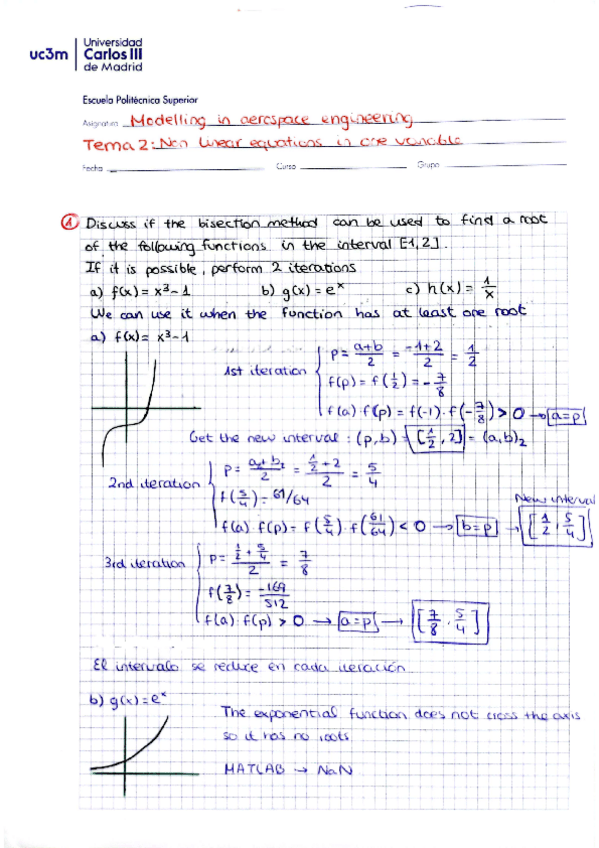 uc3m
Universidad
Carlos III
de Madrid
Escuela Politécnica Superior
Asignatura Modelling in aerospace engineering
Tema 2: Non linear equations in one variable
Fecha Curso Grupo
① Discuss if the bisection method can be used to find a root
of the following functions in the interval [-1,2].
If it is possible, perform 2 iterations
a) f(x) = x³-1 b) g(x) = eˣ c) h(x) = 1/x
We can use it when the function has at least one root
a) f(x) = x³-1
1st iteration
p = a+b/2 = -1+2/2 = 1/2
f(p) = f(1/2) = -7/8
f(a)·f(p) = f(-1)·f(-7/8) > 0 → a=p
Get the new interval: (p,b) = [1/2, 2] = (a,b)₂
2nd iteration
p = a₂+b₂/2 = 1/2+2/2 = 5/4
f(5/4) = 61/64
f(a)·f(p) = f(5/4)·f(61/64) < 0 → b=p → New interval [1/2, 5/4]
3rd iteration
p = 1/2+5/4/2 = 7/8
f(7/8) = -169/512
f(a)·f(p) > 0 → a=p → [7/8, 5/4]
El intervalo se reduce en cada iteración
b) g(x) = eˣ
The exponential function does not cross the axis
so it has no roots
MATLAB → NaN